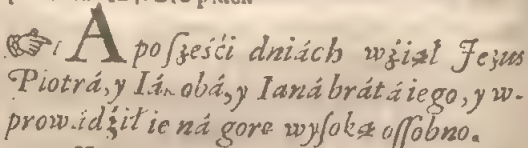 ☞ A po ſześći dniách wźiął Jezus
Piotrá, y Iákobá, y Ianá brátá iego, y w-
prowádźił ie ná gorę wyſoką oſſobno.